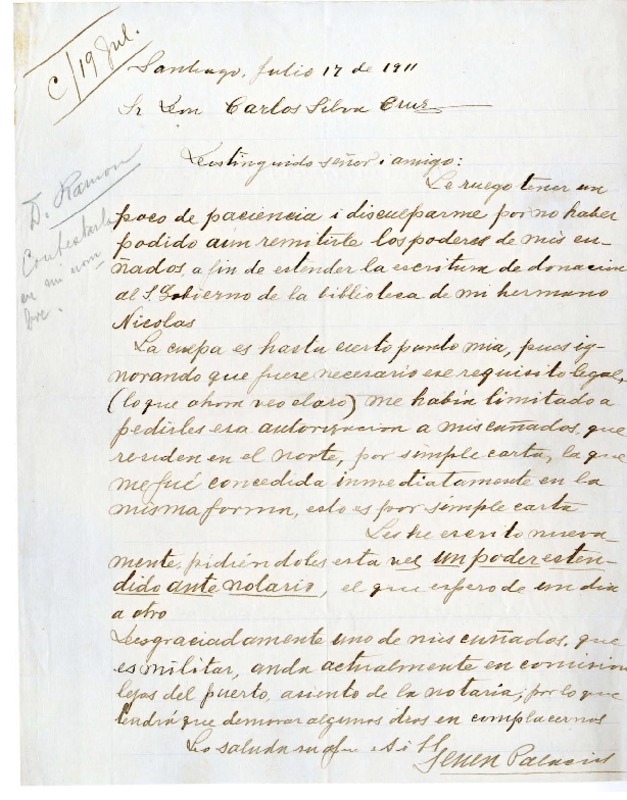 C/19 Jul.
Santiago, Julio 17 de 1911
Sr Don Carlos Silva Cruz
Distinguido señor i amigo:
D. Ramon
Contestarla
en mi nom
bre.
Le ruego tener un
poco de paciencia i disculparme por no haber
podido aun remitirte los poderes de mis cu-
ñados, a fin de estender la escritura de donacion
al S. Gobierno de la biblioteca de mi hermano
Nicolas
La culpa es hasta cierto punto mia, pues ig-
norando que fuese necesario ese requisito legal,
(lo que ahora veo claro) me habia limitado a
pedirles esa autorizacion a mis cuñados, que
residen en el norte, por simple carta, la que
me fué concedida inmediatamente en la
misma forma, esto es por simple carta
Les he escrito nueva
mente, pidiéndoles esta vez un poder esten-
dido ante notario, el que espero de un dia
a otro
Desgraciadamente uno de mis cuñados, que
es militar, anda actualmente en comision
lejos del puerto, asiento de la notaria, por lo que
tendrá que demorar algunos dias en complacernos
Lo saluda su afmo A i SS
Senen Palacios